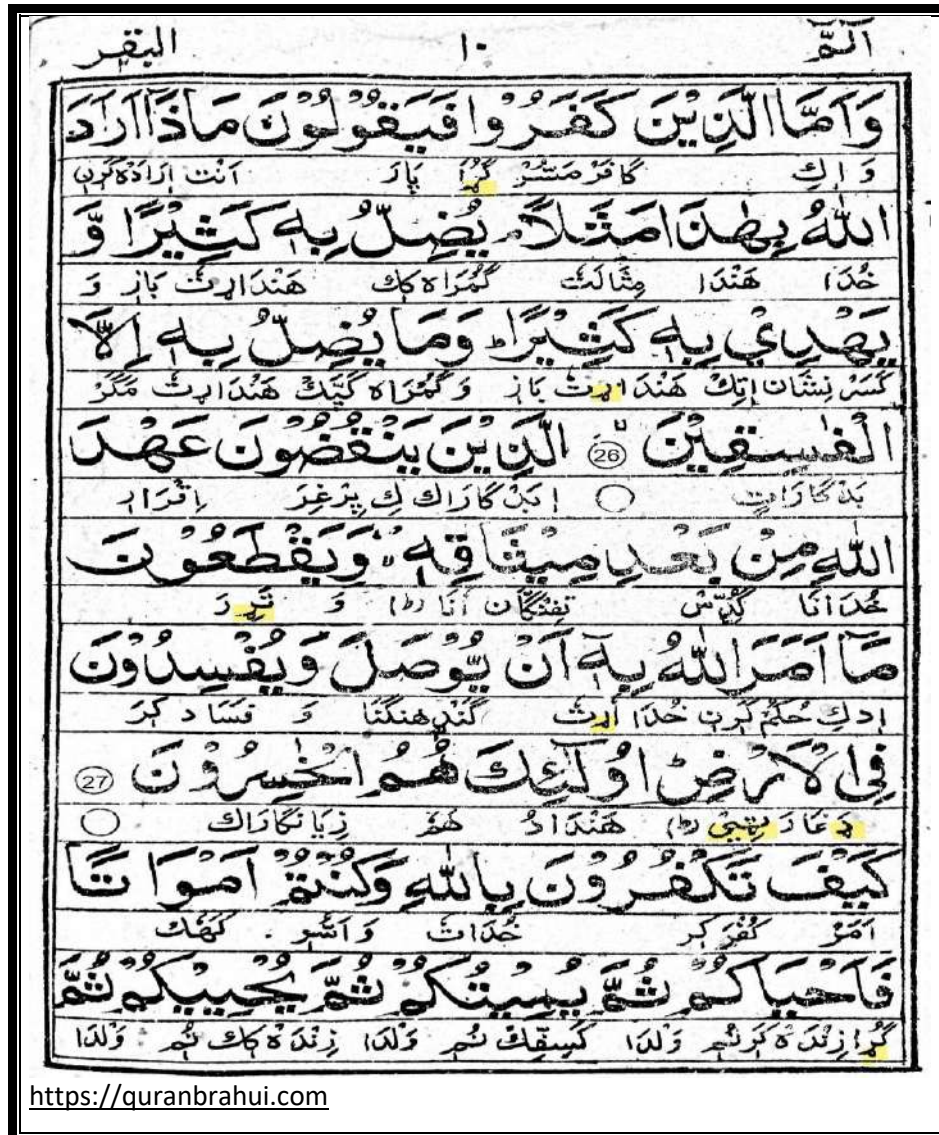 الٓمّٓ ١٠ البقر
وَاَمَّا الَّذِيْنَ كَفَرُوْا فَيَقُوْلُوْنَ مَاذَآ اَرَادَ
وَ اِكِ كَافَرْ مَسُّرْ گُڑا پَارَ اَنْت اِرَادَہ کَرِن
اللّٰهُ بِهٰذَا مَثَلًاۘ يُضِلُّ بِهٖ كَثِيْرًا وَّ
خُدَا هَنْدَا مِثَالَتْ گُمْرَاہ كِك هَنْدَاڑتْ بَاز وَ
يَهْدِيْ بِهٖ كَثِيْرًاؕ وَمَا يُضِلُّ بِهٖٓ اِلَّا
كَسَرْ نِشَان اِتِكْ هَنْدَاڑتْ بَاز وَ گُمْرَاہ كَپَّكْ هَنْدَاڑتْ مَگَرْ
الْفٰسِقِيْنَ ۙ 26 الَّذِيْنَ يَنْقُضُوْنَ عَهْدَ
بَدْ كَارَاتِ اِبَدْ كَارَاك كِ پِرْغِرَ اِقْرَارِ
اللّٰهِ مِنْۢ بَعْدِ مِيْثَاقِهٖ وَيَقْطَعُوْنَ
خُدَانَا گُڈْس تَفِنْگَان اَنَا (ط) وَ تَڑِر رَ
مَآ اَمَرَ اللّٰهُ بِهٖٓ اَنْ يُّوْصَلَ وَيُفْسِدُوْنَ
اِدكِ حُكُمْ كَرِن خُدَا اَڑتْ گَنْڈهِنگنَا وَ فَسَاد كِرَ
فِى الْاَرْضِؕ اُولٰٓئِكَ هُمُ الْخٰسِرُوْنَ 27
دَغَارَ نِيْمَتِیْ (ط) هَنْدَادُ هَمْ زِيَانكَارَاك
كَيْفَ تَكْفُرُوْنَ بِاللّٰهِ وَكُنْتُمْ اَمْوَاتًا
اَمَرْ كُفْرَ كِر خُدَاتْ وَ اَسُّرِ كَهُك
فَاَحْيَاكُمْ ثُمَّ يُمِيْتُكُمْ ثُمَّ يُحْيِيْكُمْ ثُمَّ
گُڑا زِنْدَہ كَرنُمِ وَلْدَا كَسِفِكْ نُمِ وَلْدَا زِنْدَہ كِك نُمِ وَلْدَا
https://quranbrahui.com